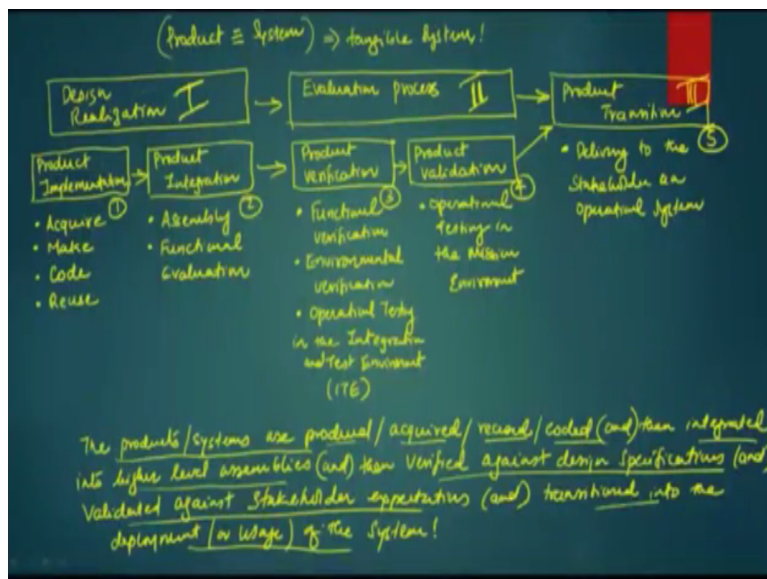 (Product ≡ System) ⇒ tangible System!
Design Realization I
→
Evaluation process II
→
Product Transition III
Product Implementation ①
→
Product Integration ②
→
Product verification ③
→
Product validation ④
⑤
• Acquire
• Make
• Code
• Reuse
• Assembly
• Functional
Evaluation
• Functional
verification
• Environmental
verification
• Operational Testing
in the Integration
and Test Environment
(ITE)
• Operational
Testing in
the Mission
Enviroment
• Delivery to the
Stakeholder an
Operational System
The products/systems are produced/acquired/reused/coded (and) then integrated
into higher level assemblies (and) then verified against design specifications (and)
validated against Stakeholder expectations (and) transitioned into the
deployment (or usage) of the System!